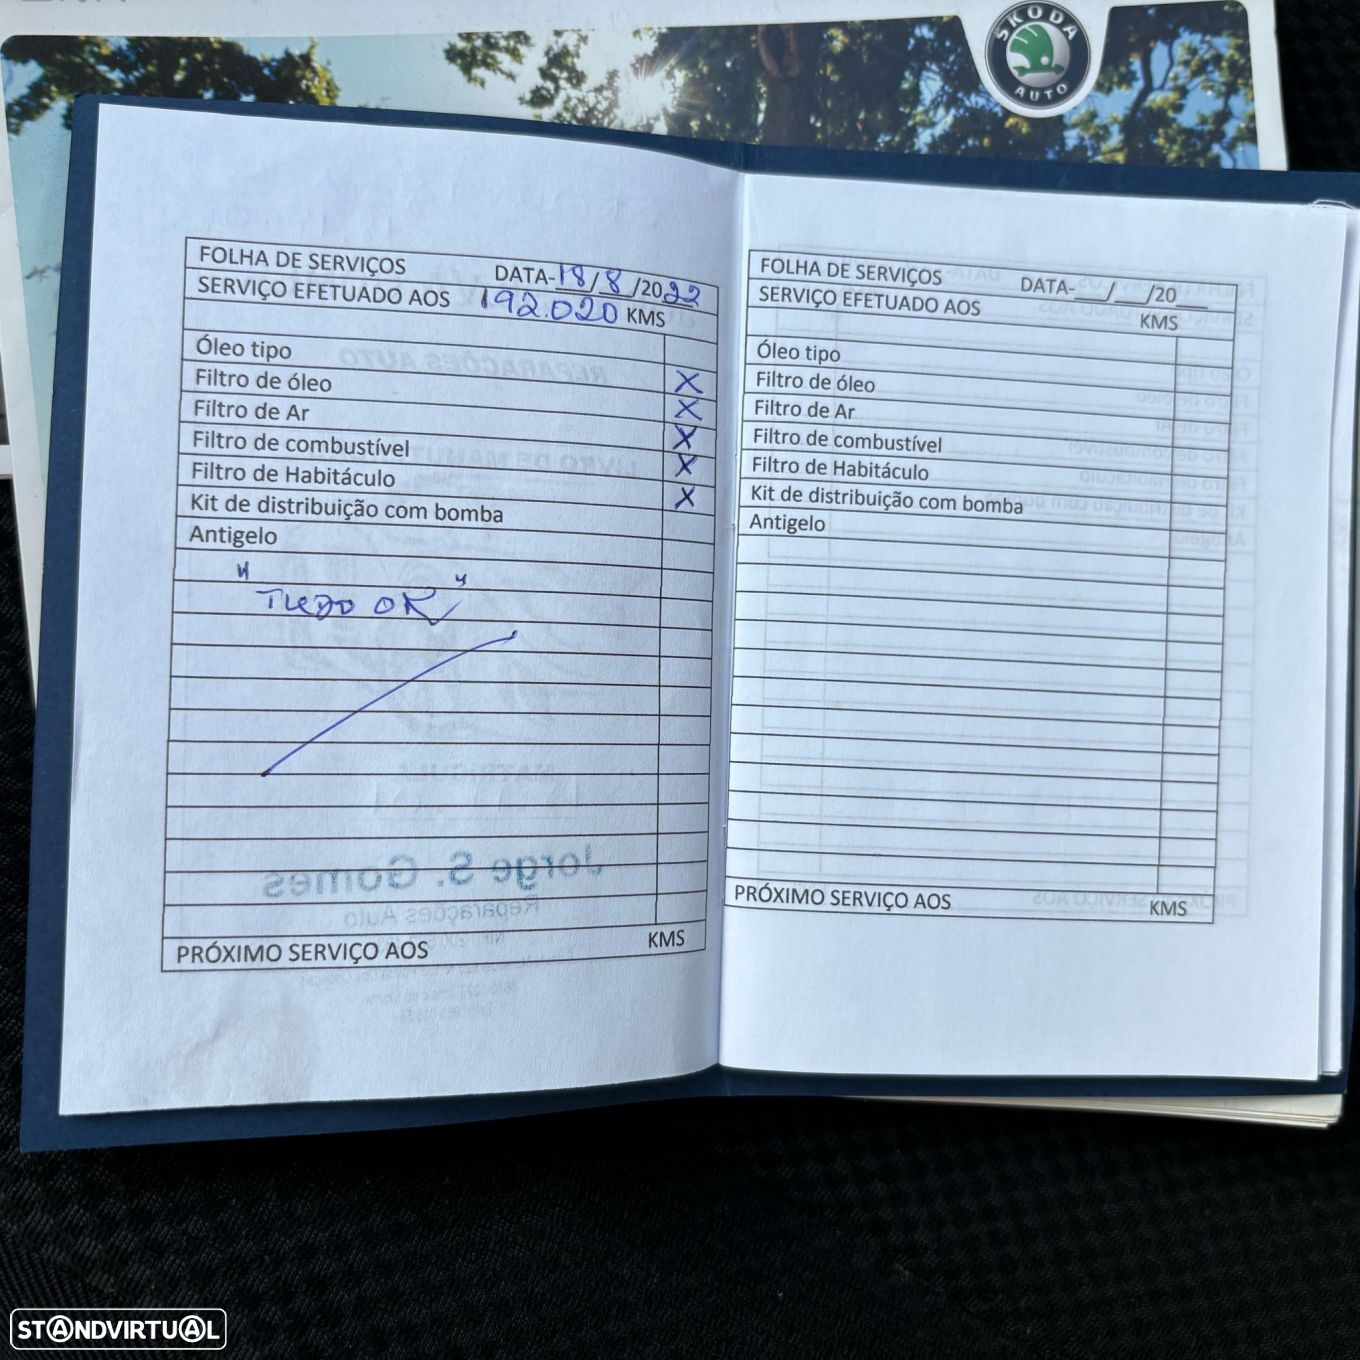 SKODA
AUTO
FOLHA DE SERVIÇOS DATA-18/8/2022
SERVIÇO EFETUADO AOS 192.020 KMS
Óleo tipo
Filtro de óleo X
Filtro de Ar X
Filtro de combustível X
Filtro de Habitáculo X
Kit de distribuição com bomba X
Antigelo
" TUDO OK "
PRÓXIMO SERVIÇO AOS KMS
FOLHA DE SERVIÇOS DATA-___/___/20
SERVIÇO EFETUADO AOS KMS
Óleo tipo
Filtro de óleo
Filtro de Ar
Filtro de combustível
Filtro de Habitáculo
Kit de distribuição com bomba
Antigelo
PRÓXIMO SERVIÇO AOS KMS
Jorge S. Gomes
Reparações Auto
STANDVIRTUAL